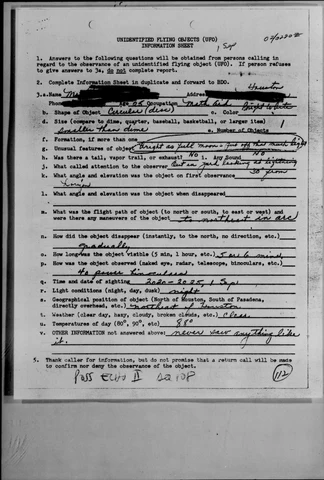 UNIDENTIFIED FLYING OBJECTS (UFO)
INFORMATION SHEET
1 Sep
1. Answers to the following questions will be obtained from persons calling in
regard to the observance of an unidentified flying object (UFO). If person refuses
to give answers to 3a, do not complete report.
2. Complete Information Sheet in duplicate and forward to BDO.
3.a. Name Address Houston
Phone Age Occupation
b. Shape of Object Circular (disc) c. Color Bright White
d. Size (compare to dime, quarter, baseball, basketball, or larger item)
smaller than dime e. Number of Objects 1
f. Formation, if more than one
g. Unusual features of object Bright as full moon
h. Was there a tail, vapor trail, or exhaust? No i. Any Sound No
j. What called attention to the observer lightning
k. What angle and elevation was the object on first observance 30° from
horizon
l. What angle and elevation was the object when disappeared
m. What was the flight path of object (to north or south, to east or west) and
were there any maneuvers of the object to northeast in arc
n. How did the object disappear (instantly, to the north, no direction, etc.)
gradually
o. How long was the object visible (5 min, 1 hour, etc.) 5 or 6 min.
p. How was the object observed (naked eye, radar, telescope, binoculars, etc.)
40 power binoculars
q. Time and date of sighting 2020-2025, 1 Sep
r. Light conditions (night, day, dusk) night
s. Geographical position of object (North of Houston, South of Pasadena,
directly overhead, etc.) northeast of Houston
t. Weather (clear day, hazy, cloudy, broken clouds, etc.) Clear
u. Temperatures of day (80°, 90°, etc) 88°
v. OTHER INFORMATION not answered above: never saw anything like
it.
5. Thank caller for information, but do not promise that a return call will be made
to confirm nor deny the observance of the object.
Poss ECHO II
112